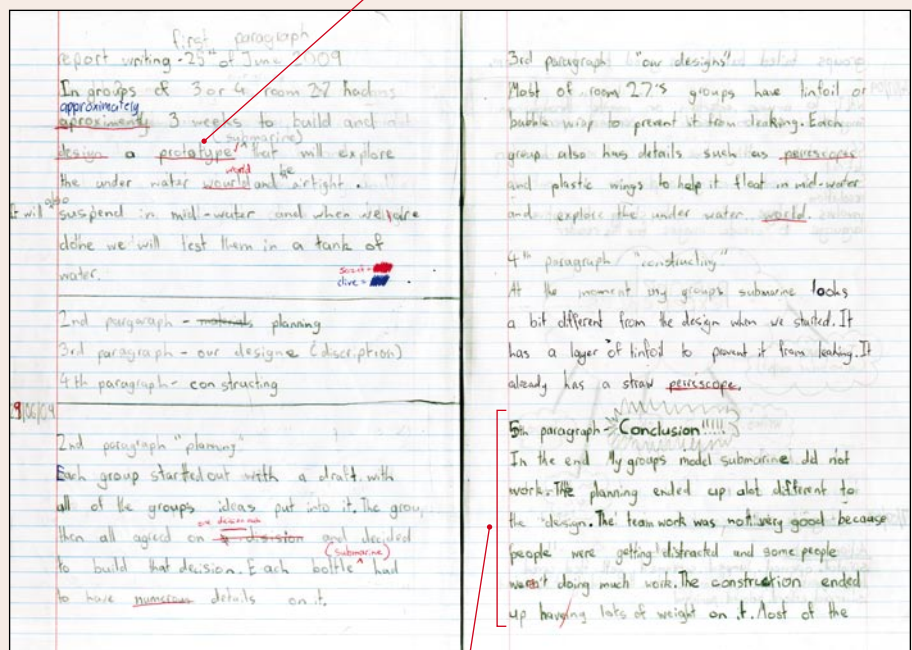 first paragraph
report writing - 25th of June 2009
In groups of 3 or 4 room 27 had
approximately
aproximently 3 weeks to build and
(submarine)
design a prototype that will explore
world be
the under water wourld and airtight.
It will also suspend in mid-water and when we are
done we will test them in a tank of
water.
clive =
2nd pargaraph - planning
3rd paragraph - our designe (discription)
4th paragraph - constructing
29/06/09
2nd paragraph "planning"
Each group startted out with a draft. with
all of the groups ideas put into it. The group
one decision
then all agreed on and decided
(submarine)
to build that decision. Each bottle had
to have numerous details on it.
3rd paragraph "our designs"
Most of room 27's groups have tinfoil or
bubble wrap to prevent it from leaking. Each
group also has details such as periscopes
and plastic wings to help it float in mid-water
and explore the under water world.
4th paragraph "constructing"
At the moment my groups submarine looks
a bit different from the design when we started. It
has a layer of tinfoil to prevent it from leaking. It
already has a straw periscope.
5th paragraph - Conclusion!!!!!
In the end My groups model submarine did not
work. The planning ended up alot different to
the design. The team work was not very good because
people were getting distracted and some people
weren't doing much work. The construction ended
up having lots of weight on it. Most of the